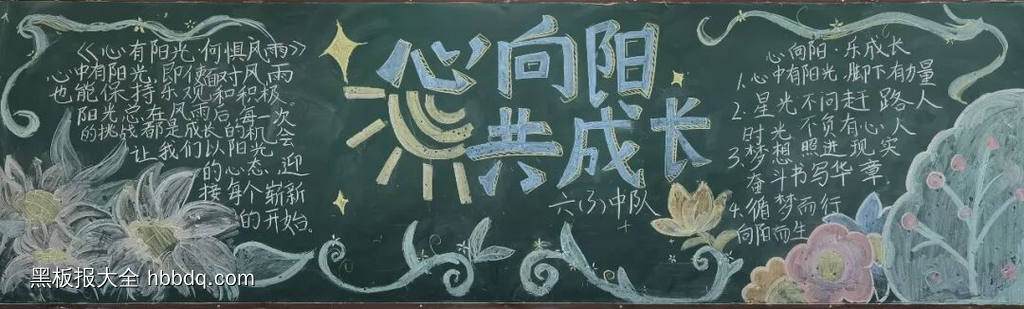 《心有阳光·何惧风雨》
心中有阳光,即使面对风雨
也能保持乐观和积极。
阳光总在风雨后,每一次
的挑战都是成长的机会
让我们以阳光
的心态,迎
接每个崭新
的开始。
心向阳
共成长
六(3)中队
心向阳·乐成长
1.心中有阳光 脚下有力量
2.星光不问赶路人
时光不负有心人
3.梦想照进现实
奋斗书写华章
4.循梦而行
向阳而生
黑板报大全 hbbdq.com